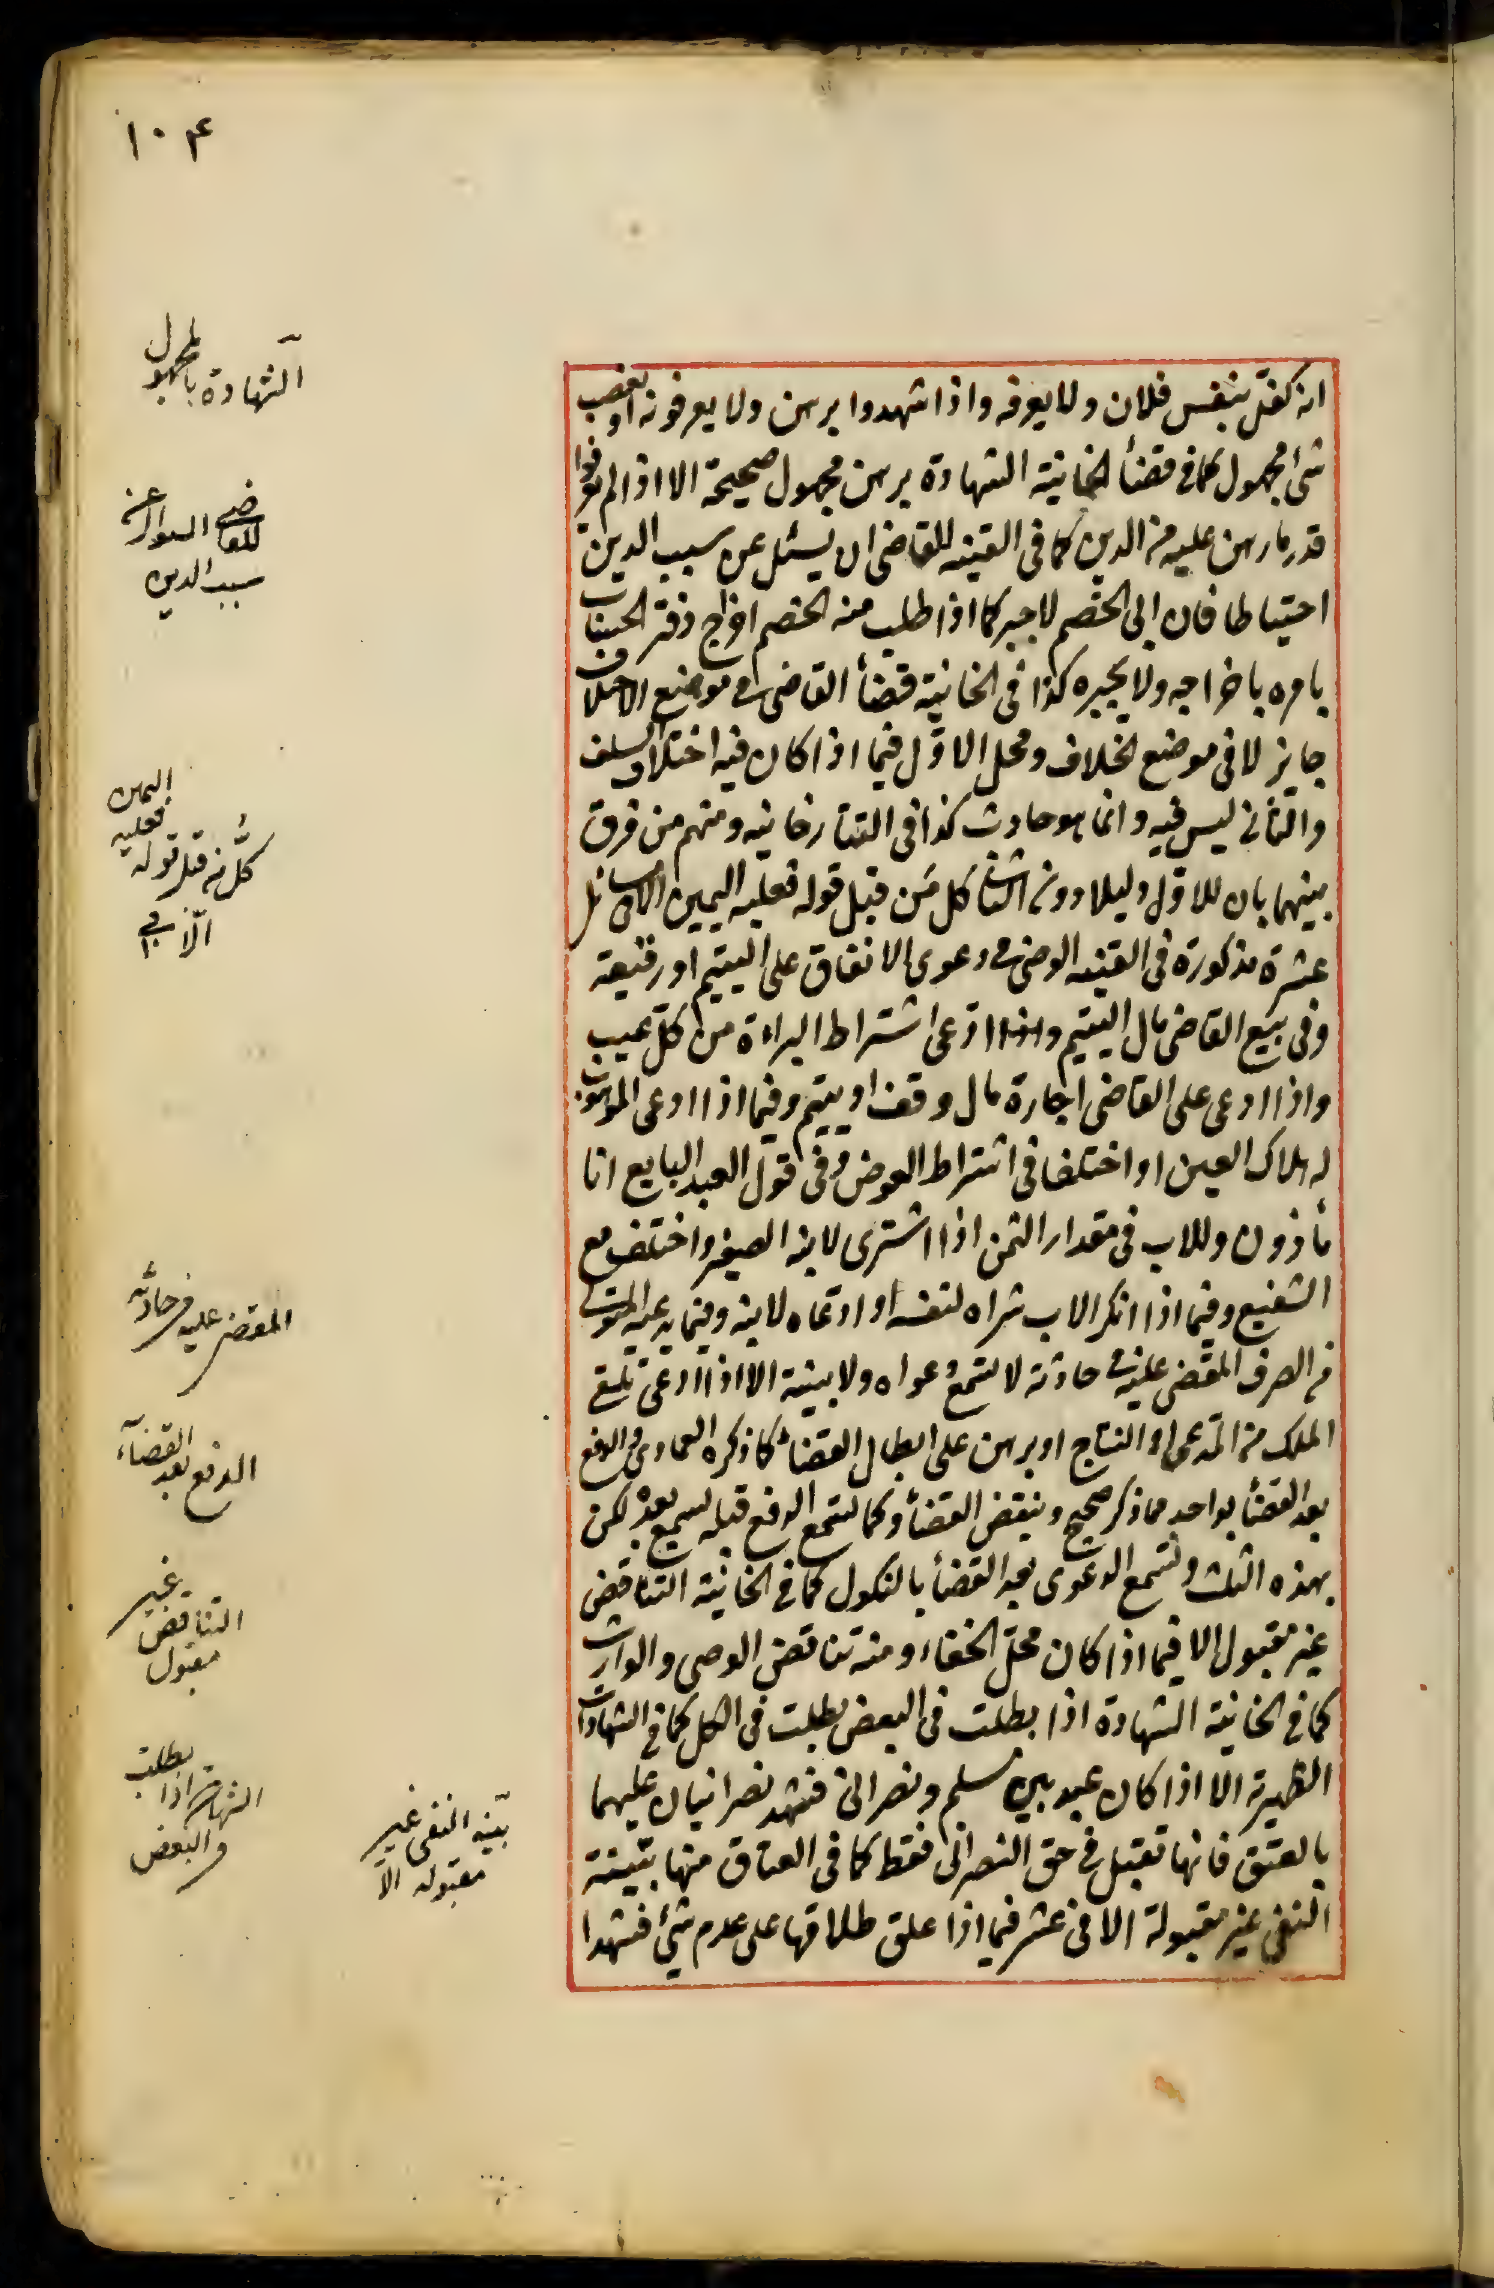 ١٠۴
انه كفل بنفس فلان ولا يعرفه واذا شهدوا برهن ولا يعرفونه او بغصب
شئ مجهول كما فى قضأ الخانية الشهادة برهن مجهول صحيحة الا اذا لم يعرفوا
قدر ما رهن عليه من الدين كما فى القنيه للقاضى ان يسئل عن سبب الدين
احتياطا فان ابى الخصم لا جبر كما اذا طلب منه الخصم اخراج دفتر الحساب
يامره باخراجه ولا يجبره كذا فى الخانية قضأ القاضى فى موضع الاختلاف
جايز لا فى موضع الخلاف ومحل الاول فيما اذا كان فيه اختلاف السلف
والثانى ليس فيه وانما هو حادث كذا فى التتارخانيه ومنهم من فرق
بينهما بان للاول دليلا دون الثانى كل من قبل قوله فعليه اليمين الا فى مسائل
عشرة مذكورة فى القنيه الوصى فى دعوى الانفاق على اليتيم او رقيقه
وفى بيع القاضى مال اليتيم واذا ادعى اشتراط البراءة من كل عيب
واذا ادعى على القاضى اجارة مال وقف او يتيم وفيما اذا ادعى الموهوب
له هلاك العين او اختلفا فى اشتراط العوض وفى قول العبد البايع انا
مأذون وللاب فى مقدار الثمن اذا اشترى لابنه الصغير واختلف مع
الشفيع وفيما اذا انكر الاب شراه لنفسه او ادعاه لابنه وفيما يدعيه المتولى
من الصرف المقضى عليه فى حادثة لا تسمع دعواه ولا بينة الا اذا ادعى تلقى
الملك من المدعى او النتاج او برهن على ابطال القضاء كما ذكره العمادى والدفع
بعد القضأ بواحد مما ذكر صحيح وينقض القضأ وكما تسمع الدفع قبله تسمع بعده لكن
بهذه الثلث وتسمع الدعوى بعد القضأ بالنكول كما فى الخانية التناقض
غير مقبول الا فيما اذا كان محل الخفاء ومنه تناقض الوصى والوارث
كما فى الخانية الشهادة اذا بطلت فى البعض بطلت فى الكل كما فى الشهادات
الظهيرية الا اذا كان عبد بين مسلم ونصرانى فشهد نصرانيان عليهما
بالعتق فانها تقبل فى حق النصرانى فقط كما فى العتاق منها بينة
النفى غير مقبولة الا فى عشر فيما اذا علق طلاقها على عدم شئ فشهدا
الشهادة بالمجهول
للقاضى السوال عن
سبب الدين
كل من قبل قوله
فعليه اليمين
الا فى
المقضى عليه فى حادثه
الدفع بعد القضاء
التناقض غير
مقبول
الشهادة اذا بطلت
فى البعض
بينه النفى غير
مقبوله الا